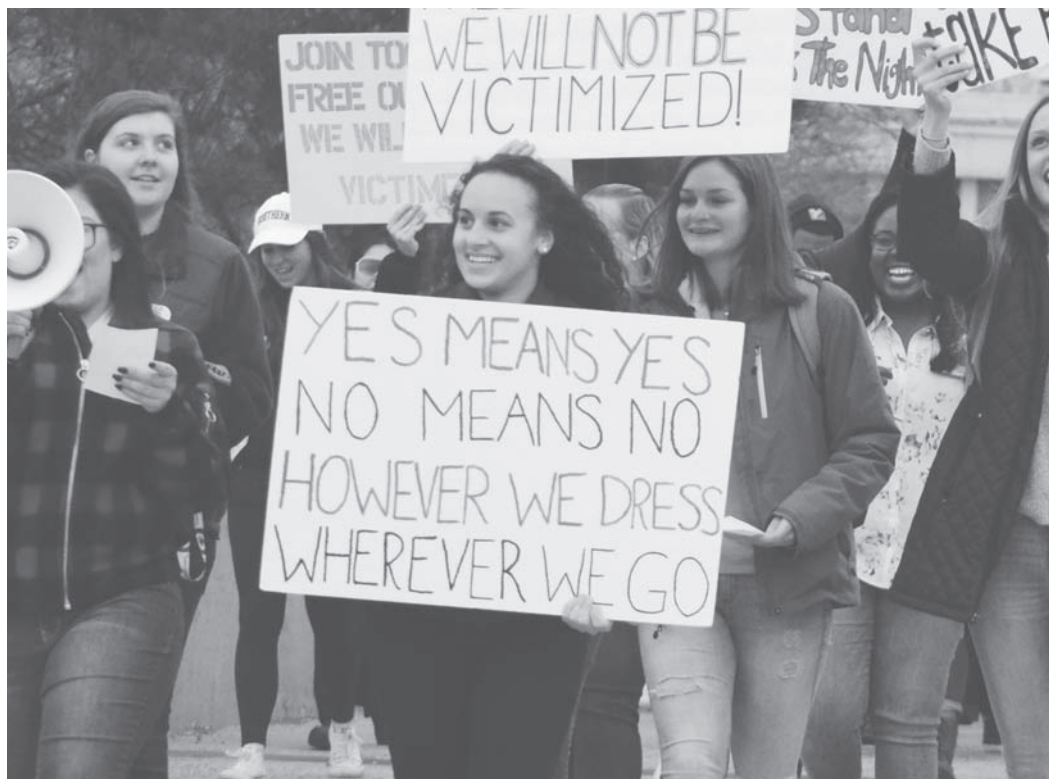 JOIN
FREE
WE WILL
WE WILL NOT BE
VICTIMIZED!
The
YES MEANS YES
NO MEANS NO
HOWEVER WE DRESS
WHEREVER WE GO